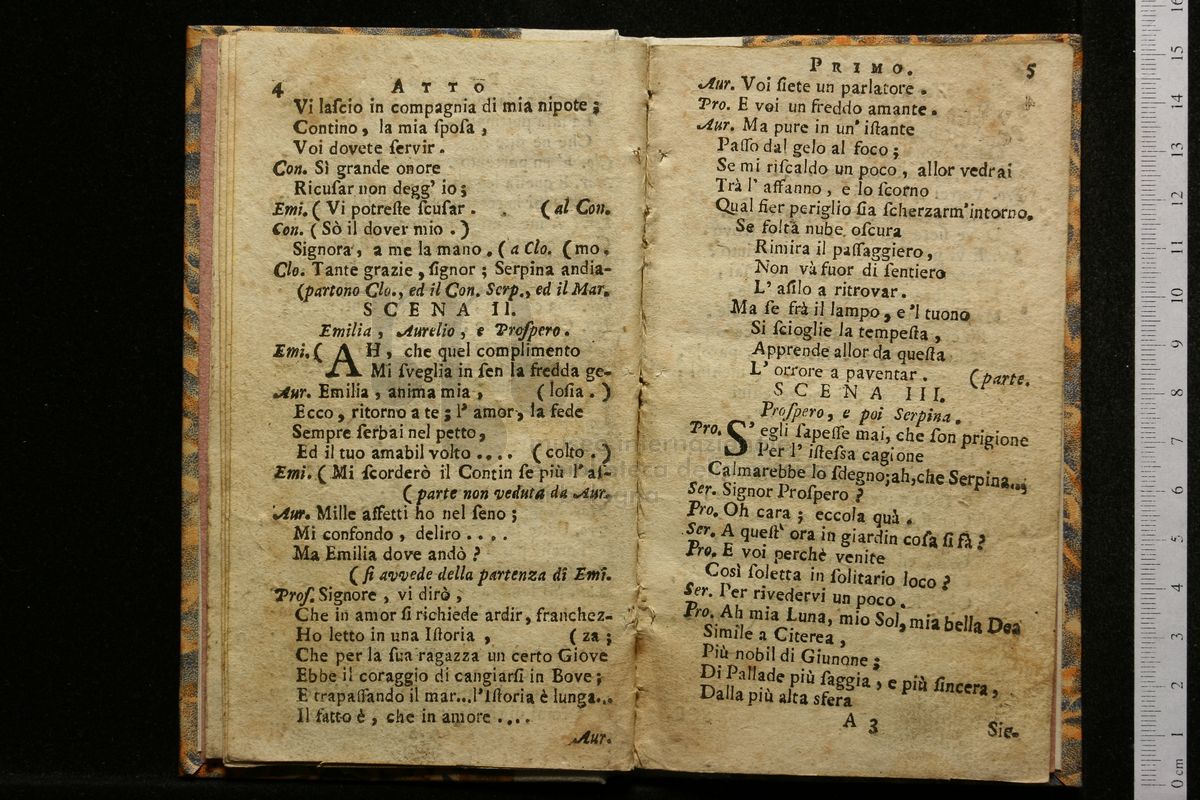 4 ATTO
Vi laſcio in compagnia di mia nipote;
Contino, la mia ſpoſa,
Voi dovete ſervir.
Con. Sì grande onore
Ricuſar non degg' io;
Emi. (Vi potreſte ſcuſar. (al Con.
Con. (Sò il dover mio.)
Signora, a me la mano. (a Clo. (mo.
Clo. Tante grazie, ſignor; Serpina andia-
(partono Clo., ed il Con. Serp., ed il Mar.
SCENA II.
Emilia, Aurelio, e Proſpero.
Emi. (AH, che quel complimento
Mi ſveglia in ſen la fredda ge-
Aur. Emilia, anima mia, (loſia.)
Ecco, ritorno a te; l' amor, la fede
Sempre ſerbai nel petto,
Ed il tuo amabil volto .... (colto.)
Emi. (Mi ſcorderò il Contin ſe più l' aſ-
(parte non veduta da Aur.
Aur. Mille affetti ho nel ſeno;
Mi confondo, deliro ....
Ma Emilia dove andò?
(ſi avvede della partenza di Emi.
Proſ. Signore, vi dirò,
Che in amor ſi richiede ardir, franchez-
Ho letto in una Iſtoria, (za;
Che per la ſua ragazza un certo Giove
Ebbe il coraggio di cangiarſi in Bove;
E trapaſſando il mar...l'Iſtoria è lunga...
Il fatto è, che in amore ....
Aur.
PRIMO. 5
Aur. Voi ſiete un parlatore.
Pro. E voi un freddo amante.
Aur. Ma pure in un' iſtante
Paſſo dal gelo al foco;
Se mi riſcaldo un poco, allor vedrai
Trà l' affanno, e lo ſcorno
Qual fier periglio ſia ſcherzarm'intorno.
Se folta nube oſcura
Rimira il paſſaggiero,
Non và fuor di ſentiero
L' aſilo a ritrovar.
Ma ſe frà il lampo, e 'l tuono
Si ſcioglie la tempeſta,
Apprende allor da queſta
L' orrore a paventar. (parte.
SCENA III.
Proſpero, e poi Serpina.
Pro. S' egli ſapeſſe mai, che ſon prigione
Per l' iſteſſa cagione
Calmarebbe lo ſdegno;ah,che Serpina...;
Ser. Signor Proſpero?
Pro. Oh cara; eccola quà.
Ser. A queſt' ora in giardin coſa ſi fà?
Pro. E voi perchè venite
Così ſoletta in ſolitario loco?
Ser. Per rivedervi un poco.
Pro. Ah mia Luna, mio Sol, mia bella Dea
Simile a Citerea,
Più nobil di Giunone;
Di Pallade più ſaggia, e più ſincera,
Dalla più alta sfera
A 3 Sie-